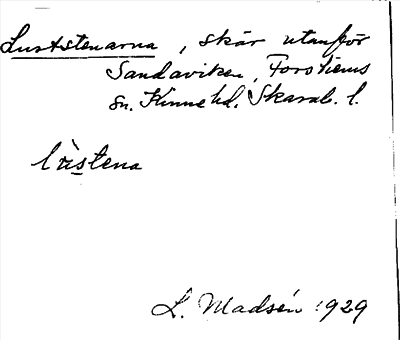 Luststenarna, skär utanför
Sandaviken, Forshems
sn. Kinne hd. Skarab. l.
L. Madsén 1929